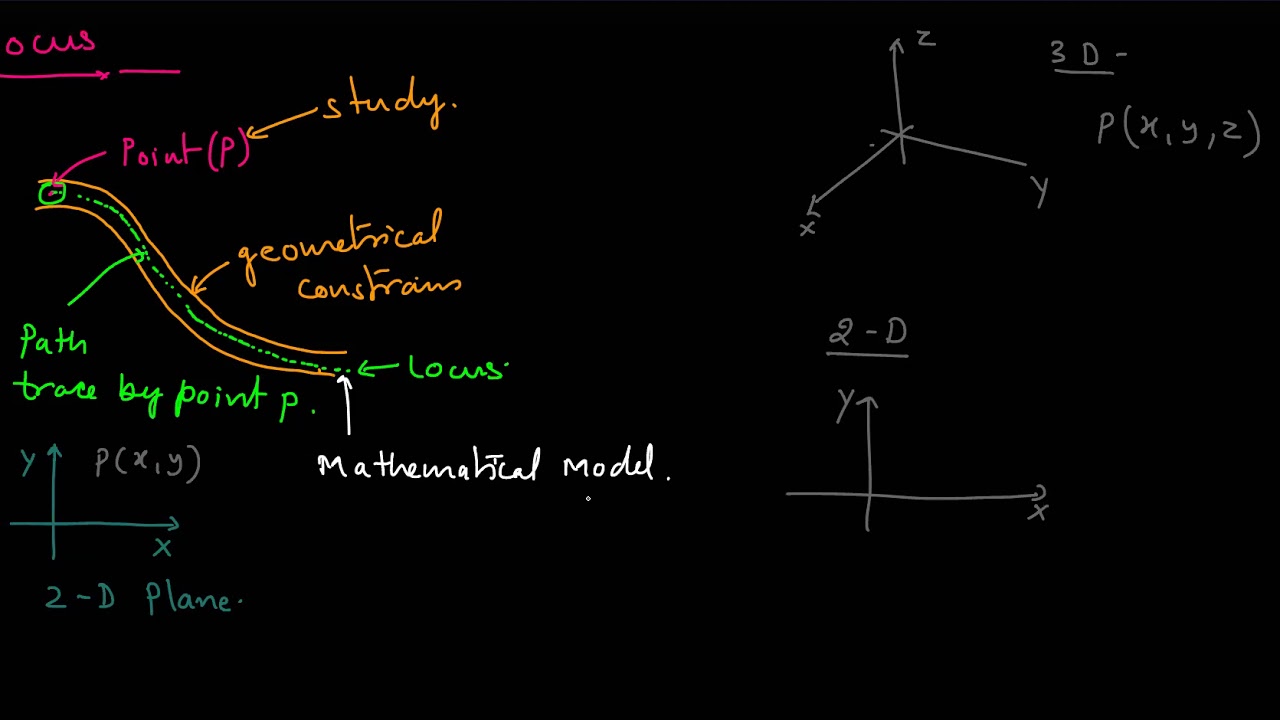 ocus
study.
Point(P)
geometrical
constrains
Path
trace by point p.
Locus.
Mathematical Model.
Y
P(x,y)
X
2-D Plane.
z
3 D -
P(x,y,z)
y
x
2-D
Y
X